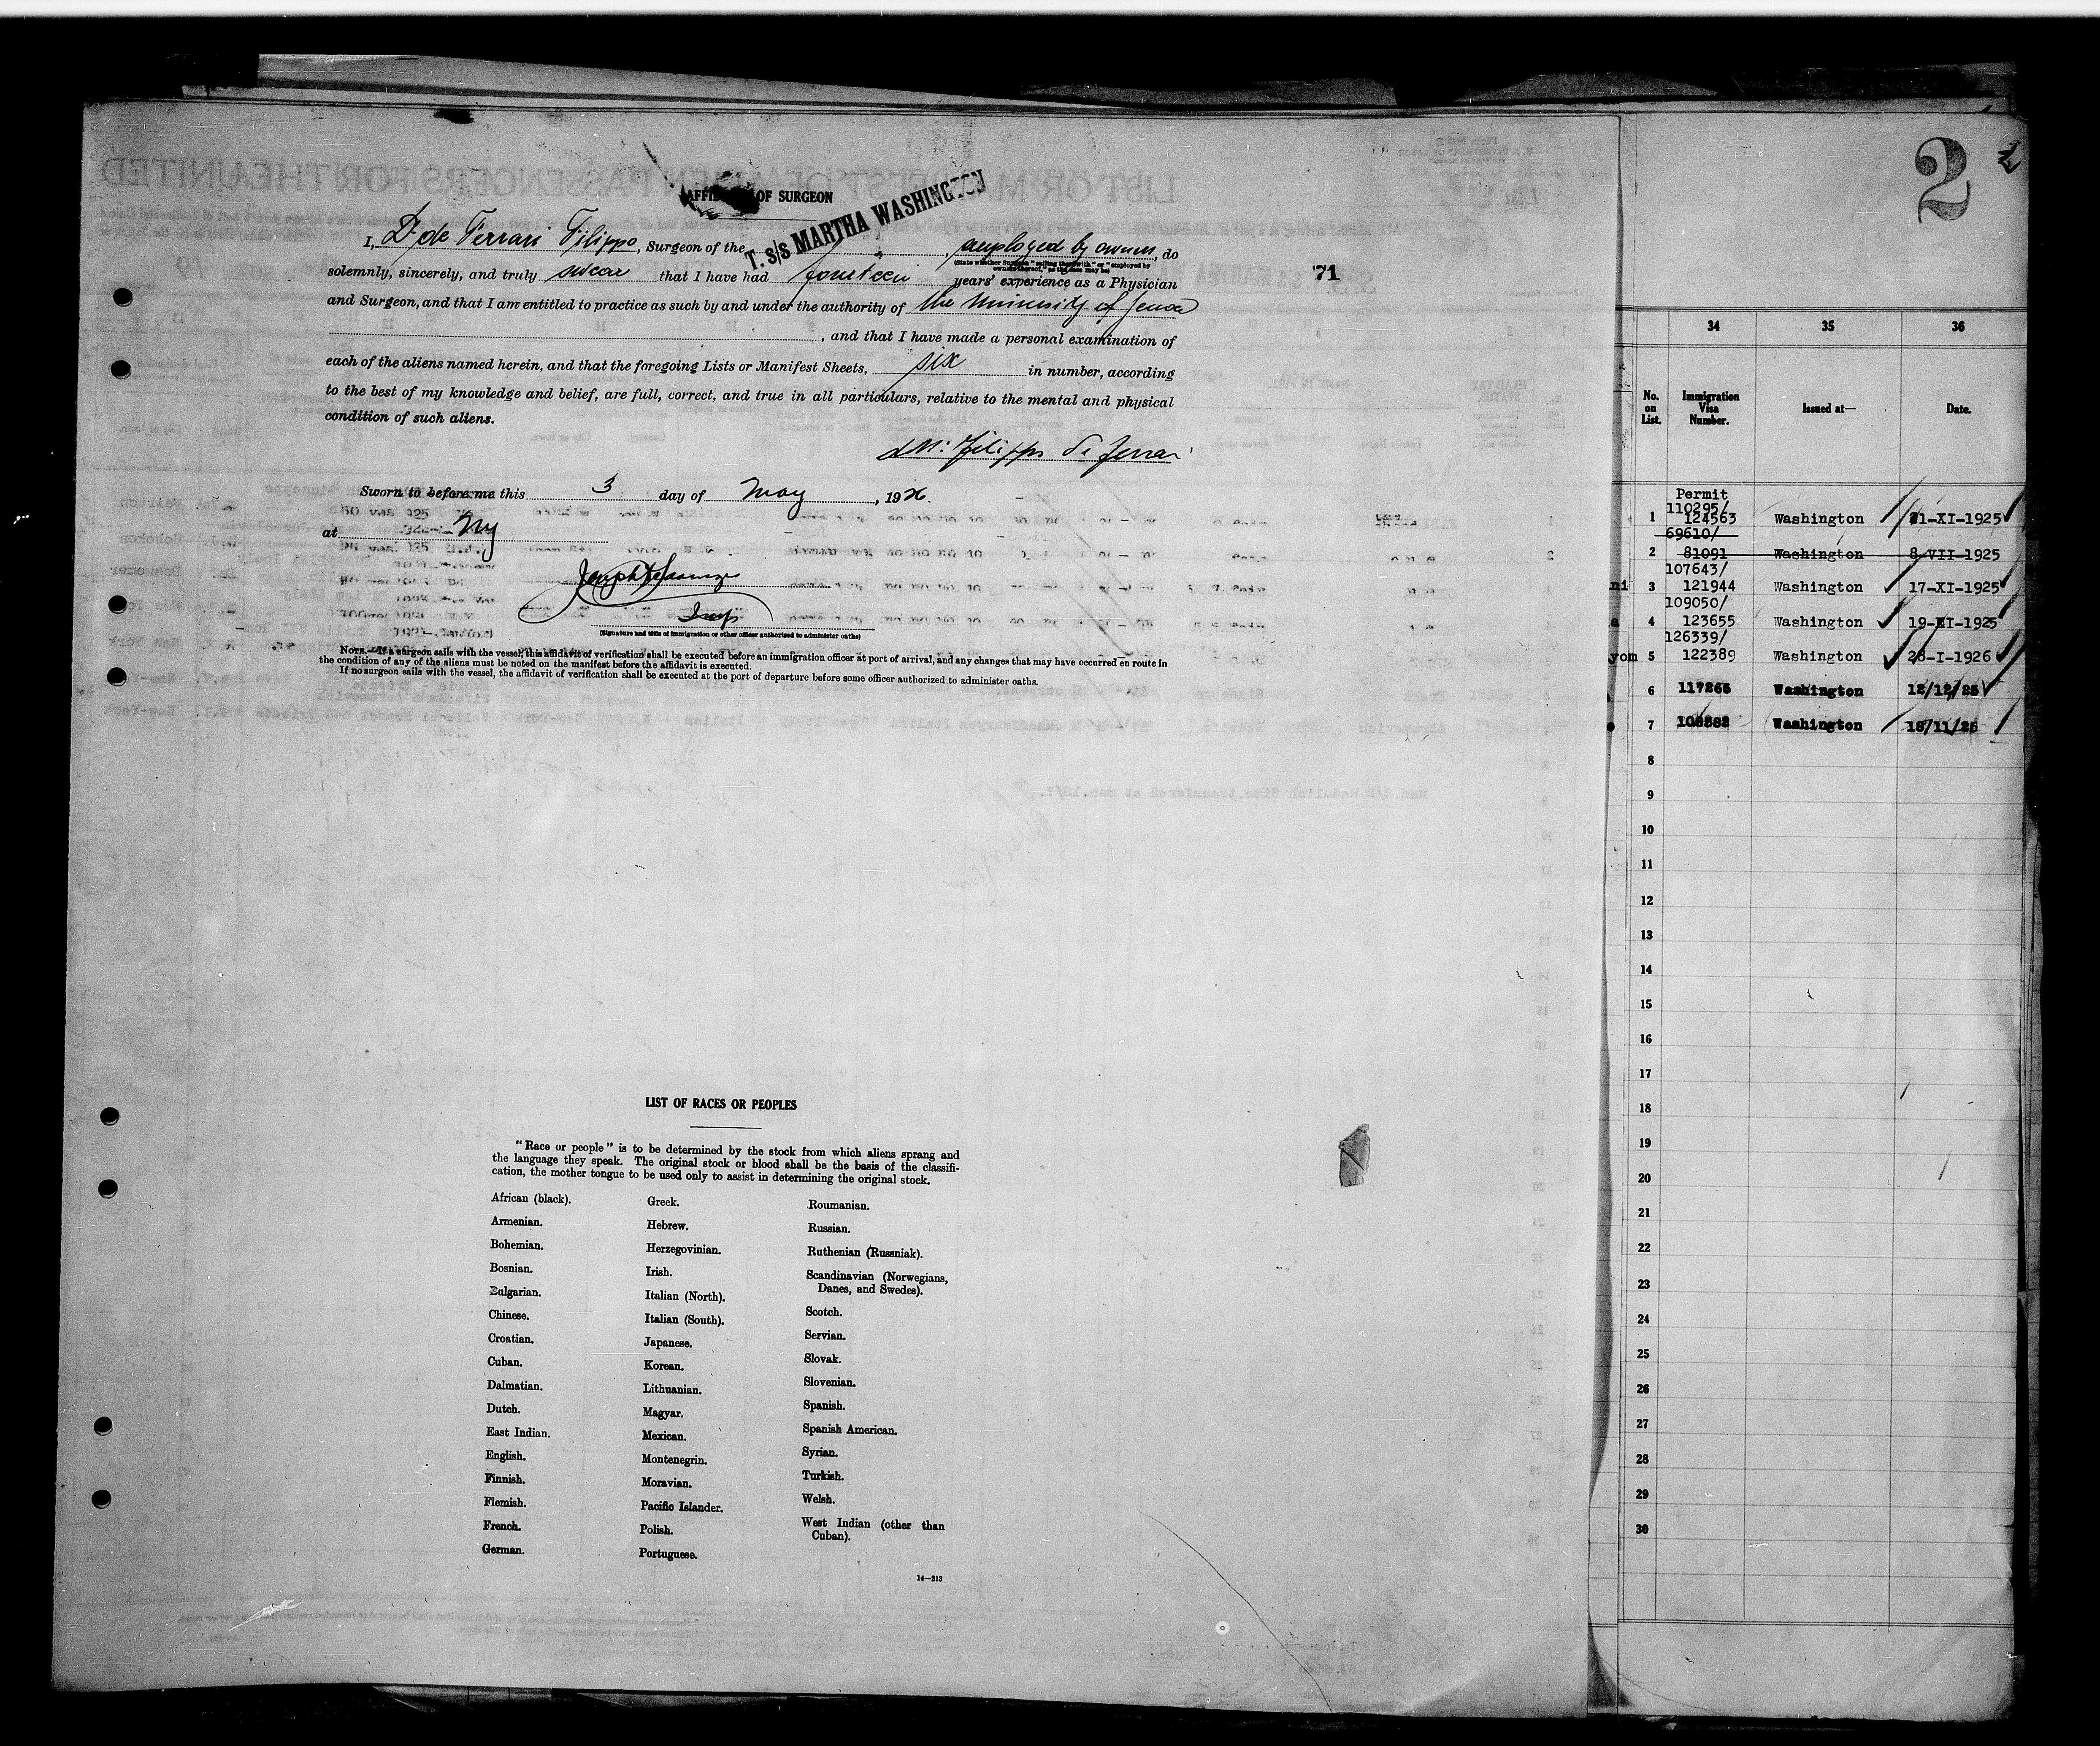 AFFIDAVIT OF SURGEON
T. S/S MARTHA WASHINGTON
I, Dr de Ferrari Filippo, Surgeon of the , employed by owner, do
(State whether Surgeon "sailing therewith" or "employed by owners thereof," as the case may be)
solemnly, sincerely, and truly swear that I have had fourteen years' experience as a Physician
and Surgeon, and that I am entitled to practice as such by and under the authority of the University of Genoa
, and that I have made a personal examination of
each of the aliens named herein, and that the foregoing Lists or Manifest Sheets, six in number, according
to the best of my knowledge and belief, are full, correct, and true in all particulars, relative to the mental and physical
condition of such aliens.
Filippo de Ferrari
Sworn to before me this 3 day of May, 1926.
at NY
Insp
(Signature and title of immigration or other officer authorized to administer oaths)
NOTE.—If a surgeon sails with the vessel, this affidavit of verification shall be executed before an immigration officer at port of arrival, and any changes that may have occurred en route in
the condition of any of the aliens must be noted on the manifest before the affidavit is executed.
If no surgeon sails with the vessel, the affidavit of verification shall be executed at the port of departure before some officer authorized to administer oaths.
71
LIST OF RACES OR PEOPLES
"Race or people" is to be determined by the stock from which aliens sprang and
the language they speak. The original stock or blood shall be the basis of the classifi-
cation, the mother tongue to be used only to assist in determining the original stock.
African (black).
Armenian.
Bohemian.
Bosnian.
Bulgarian.
Chinese.
Croatian.
Cuban.
Dalmatian.
Dutch.
East Indian.
English.
Finnish.
Flemish.
French.
German.
Greek.
Hebrew.
Herzegovinian.
Irish.
Italian (North).
Italian (South).
Japanese.
Korean.
Lithuanian.
Magyar.
Mexican.
Montenegrin.
Moravian.
Pacific Islander.
Polish.
Portuguese.
Roumanian.
Russian.
Ruthenian (Russniak).
Scandinavian (Norwegians,
Danes, and Swedes).
Scotch.
Servian.
Slovak.
Slovenian.
Spanish.
Spanish American.
Syrian.
Turkish.
Welsh.
West Indian (other than
Cuban).
14—213
2 2
34 35 36
No. on List. Immigration Visa Number. Issued at— Date.
Permit
110295/
1 124563 Washington 21-XI-1925
69610/
2 81091 Washington 8-VII-1925
107643/
ni 3 121944 Washington 17-XI-1925
109050/
a 4 123655 Washington 19-XI-1925
126339/
yom 5 122389 Washington 28-I-1926
6 117266 Washington 12/12/25
o 7 108382 Washington 18/11/25
8
9
10
11
12
13
14
15
16
17
18
19
20
21
22
23
24
25
26
27
28
29
30